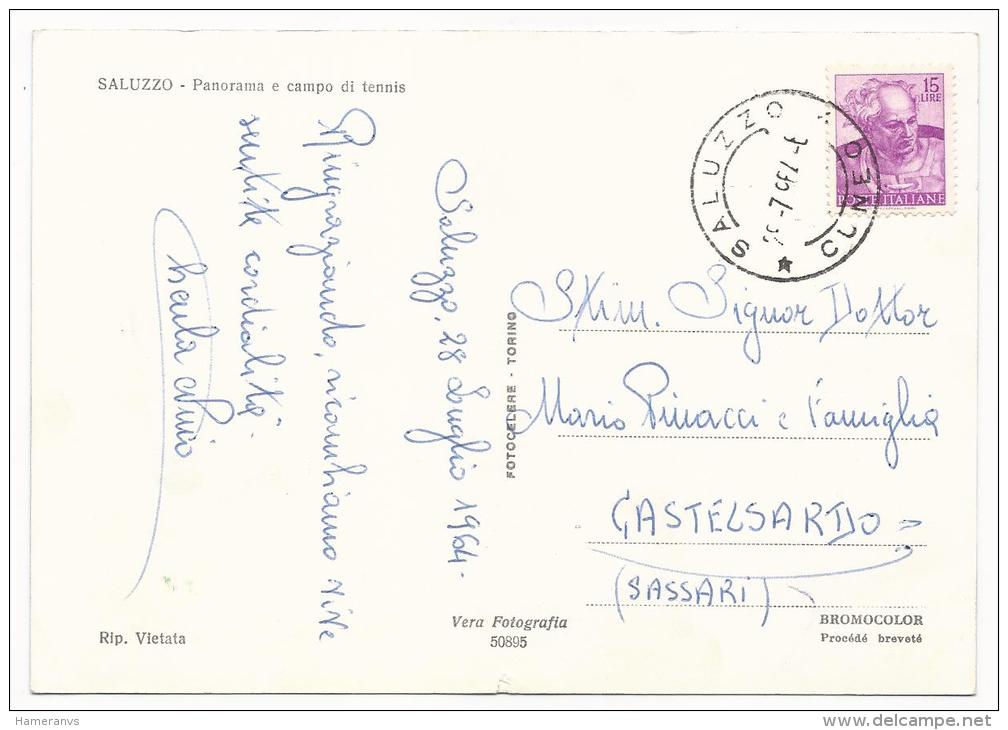 SALUZZO - Panorama e campo di tennis
Saluzzo, 28 Luglio 1964.
Ringraziando, ricambiamo vive
sentite cordialità.
Nino
FOTOCELERE - TORINO
15
LIRE
POSTE ITALIANE
SALUZZO
CUNEO
Stim. Signor Dottor
Mario Pinacci e famiglia
CASTELSARDO =
(SASSARI)
Rip. Vietata
Vera Fotografia
50895
BROMOCOLOR
Procédé breveté
Hameranvs
www.delcampe.net